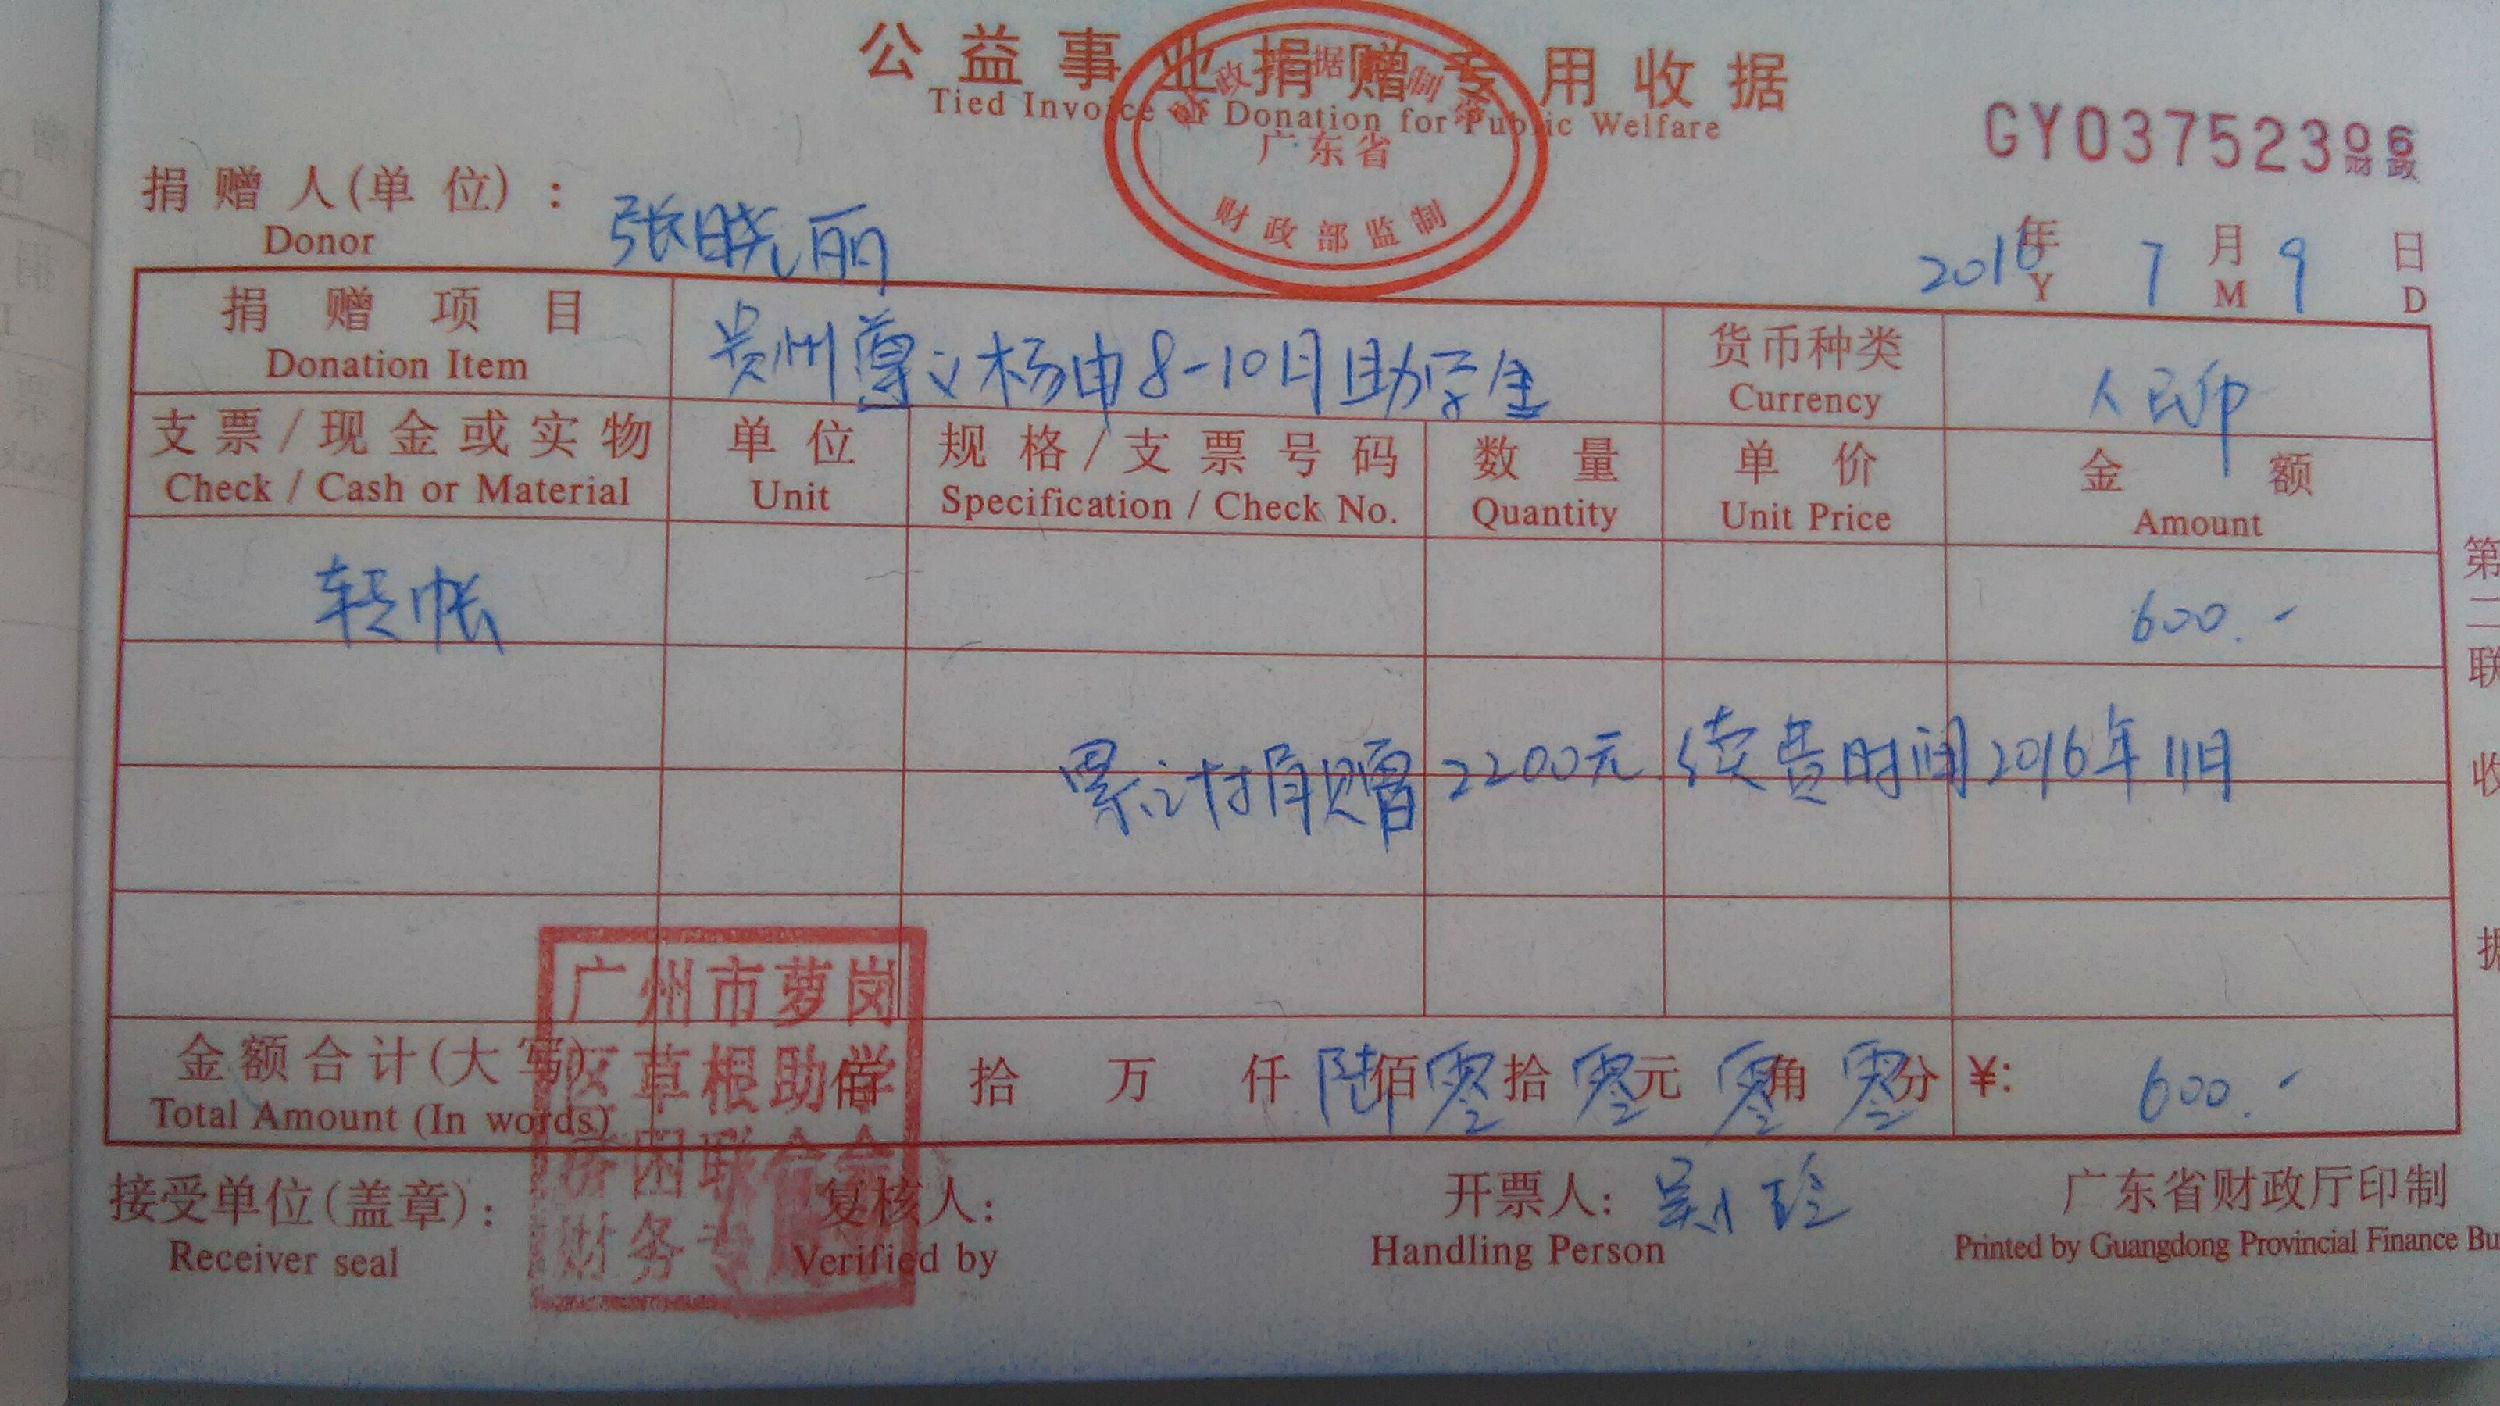 公益事业捐赠专用收据
Tied Invoice of Donation for Public Welfare
广东省
财政部监制
GY03752306
财政
捐赠人(单位): 张晓丽
Donor
2016年 7月 9日
Y M D
捐赠项目 贵州遵义杨申8-10月助学金 货币种类 人民币
Donation Item Currency
支票/现金或实物 单位 规格/支票号码 数量 单价 金额
Check / Cash or Material Unit Specification / Check No. Quantity Unit Price Amount
转帐 600.-
累计捐赠2200元 续费时间2016年11月
广州市萝岗
区草根助学
济困联合会
财务专用章
金额合计(大写) 佰 拾 万 仟 陆佰零拾零元零角零分 ¥: 600.-
Total Amount (In words)
接受单位(盖章): 复核人: 开票人: 吴小玲 广东省财政厅印制
Receiver seal Verified by Handling Person Printed by Guangdong Provincial Finance Bu
第二联 收据